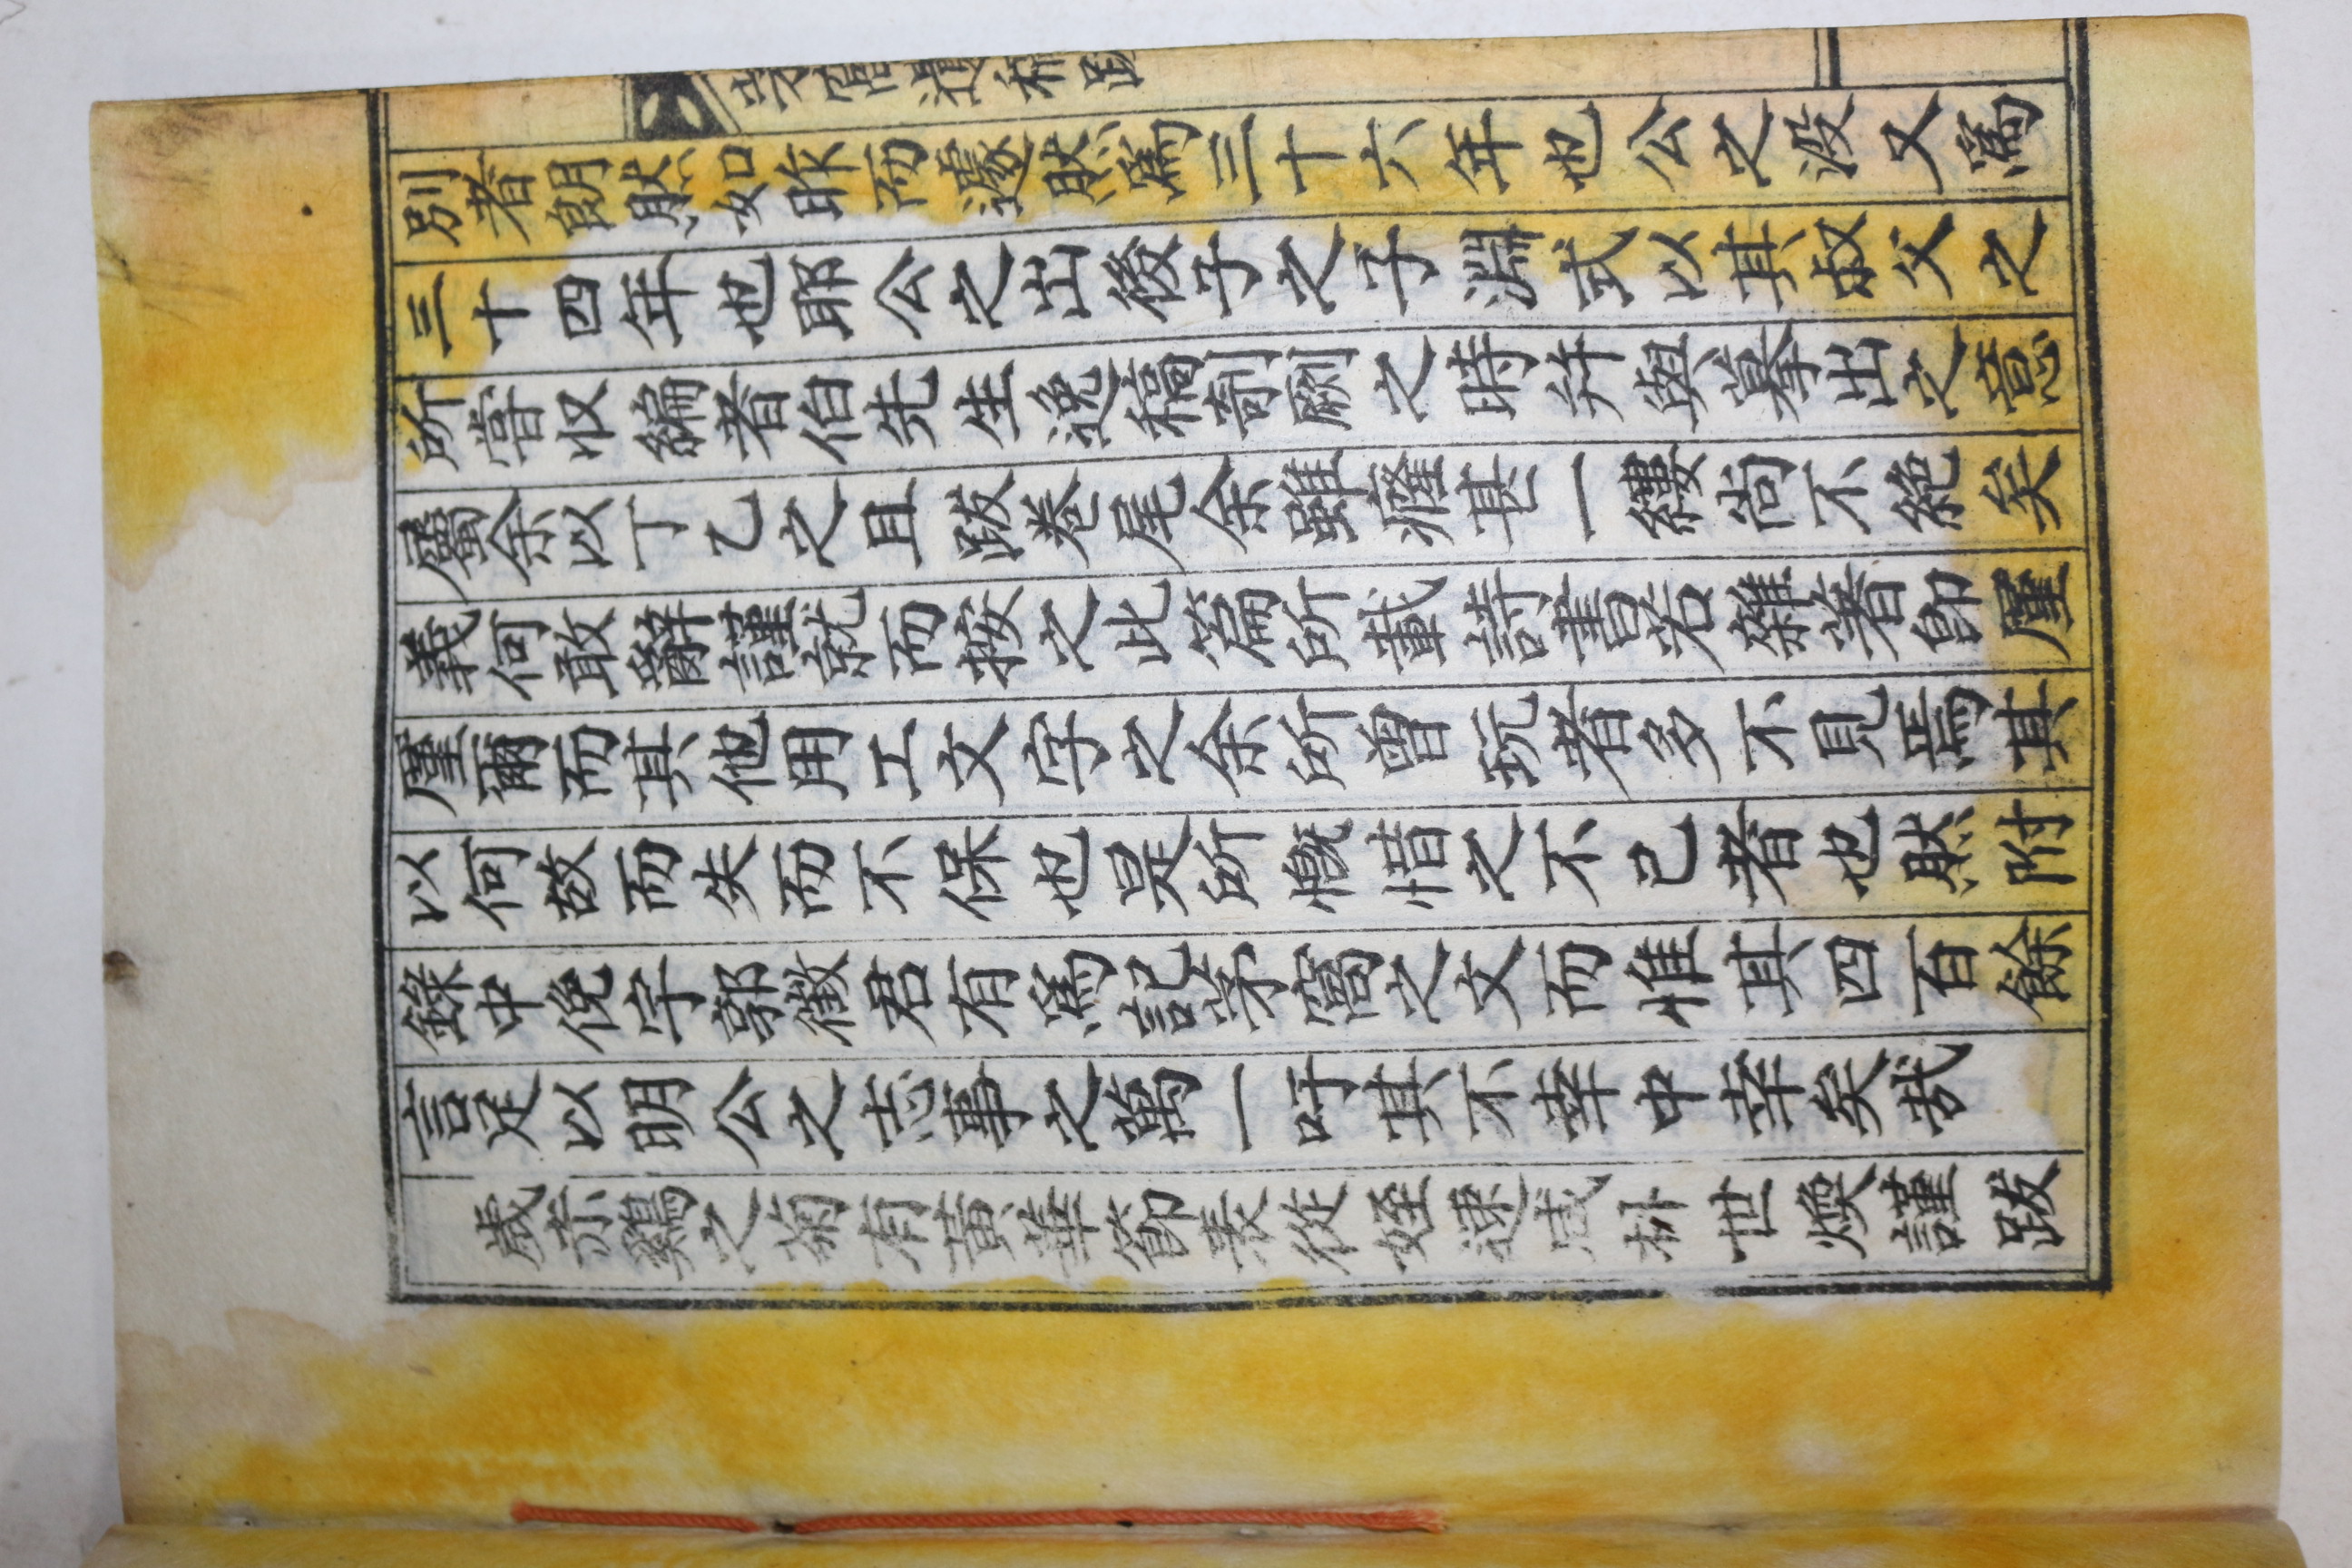 茅窩遺稿跋
別者朗然如昨而遽然爲三十六年也公之沒又爲
三十四年也耶公之出後子之子淵式以其叔父之
所嘗収編者伯先生逸稿剞劂之時幷與摹出之意
屬余以丁乙之且跋卷尾余雖癃甚一縷尚不絶矣
義何敢辭謹就而按之此篇所載詩書若雜著卽厪
厪爾而其他用工文字之余所曾玩者多不見焉其
以何故而失而不保也是所慨惜之不已者也然附
錄中俛宇郭徵君有爲記茅窩之文而惟其四百餘
言足以明公之志事之萬一吁其不幸中幸矣哉
歲赤鷄之菊有黃華節表從姪速咸朴世煥謹跋